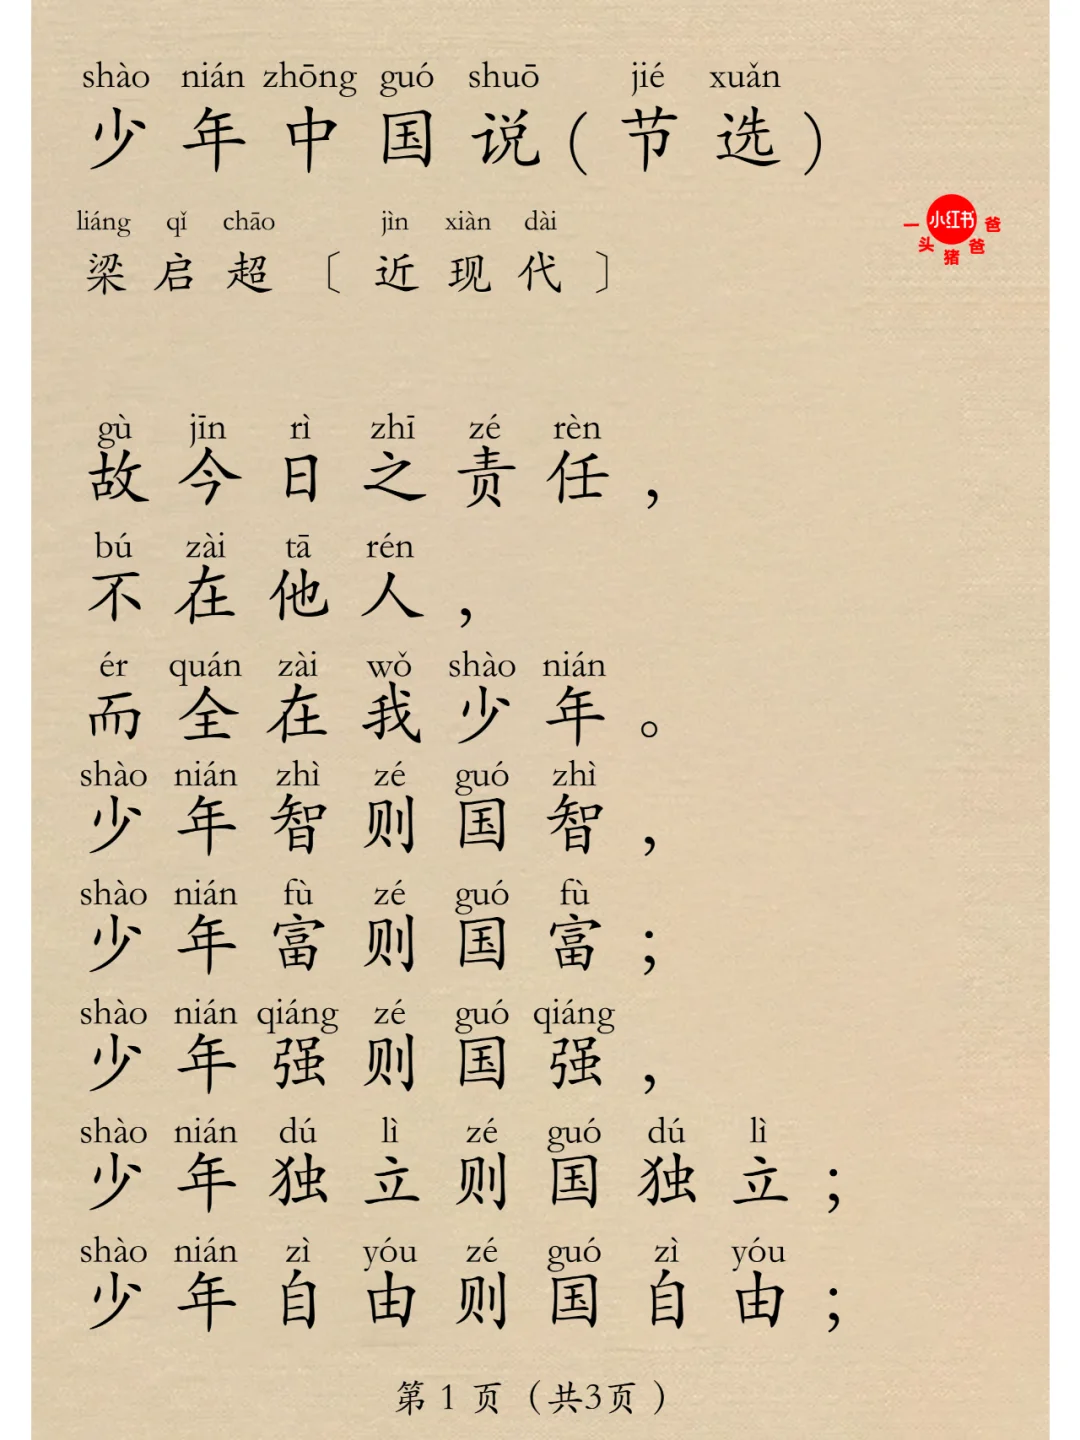 shào nián zhōng guó shuō jié xuǎn
少年中国说(节选)
liáng qǐ chāo jìn xiàn dài
梁启超〔近现代〕
小红书
一头猪爸爸
gù jīn rì zhī zé rèn
故今日之责任，
bú zài tā rén
不在他人，
ér quán zài wǒ shào nián
而全在我少年。
shào nián zhì zé guó zhì
少年智则国智，
shào nián fù zé guó fù
少年富则国富；
shào nián qiáng zé guó qiáng
少年强则国强，
shào nián dú lì zé guó dú lì
少年独立则国独立；
shào nián zì yóu zé guó zì yóu
少年自由则国自由；
第 1 页（共3页）